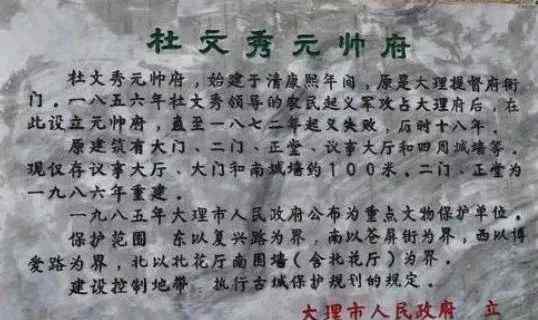 杜文秀元帅府
杜文秀元帅府，始建于清康熙年间，原是大理提督府衙
门。一八五六年杜文秀领导的农民起义军攻占大理府后，在
此设立元帅府，直至一八七二年起义失败，历时十八年。
原建筑有大门、二门、正堂、议事大厅和四周城墙等。
现仅存议事大厅、大门和南城墙约100米。二门、正堂为
一九八六年重建。
一九八五年大理市人民政府公布为重点文物保护单位。
保护范围 东以复兴路为界，南以苍屏街为界，西以博
爱路为界，北以北花厅南围墙（含北花厅）为界。
建设控制地带 执行古城保护规划的规定。
大理市人民政府 立